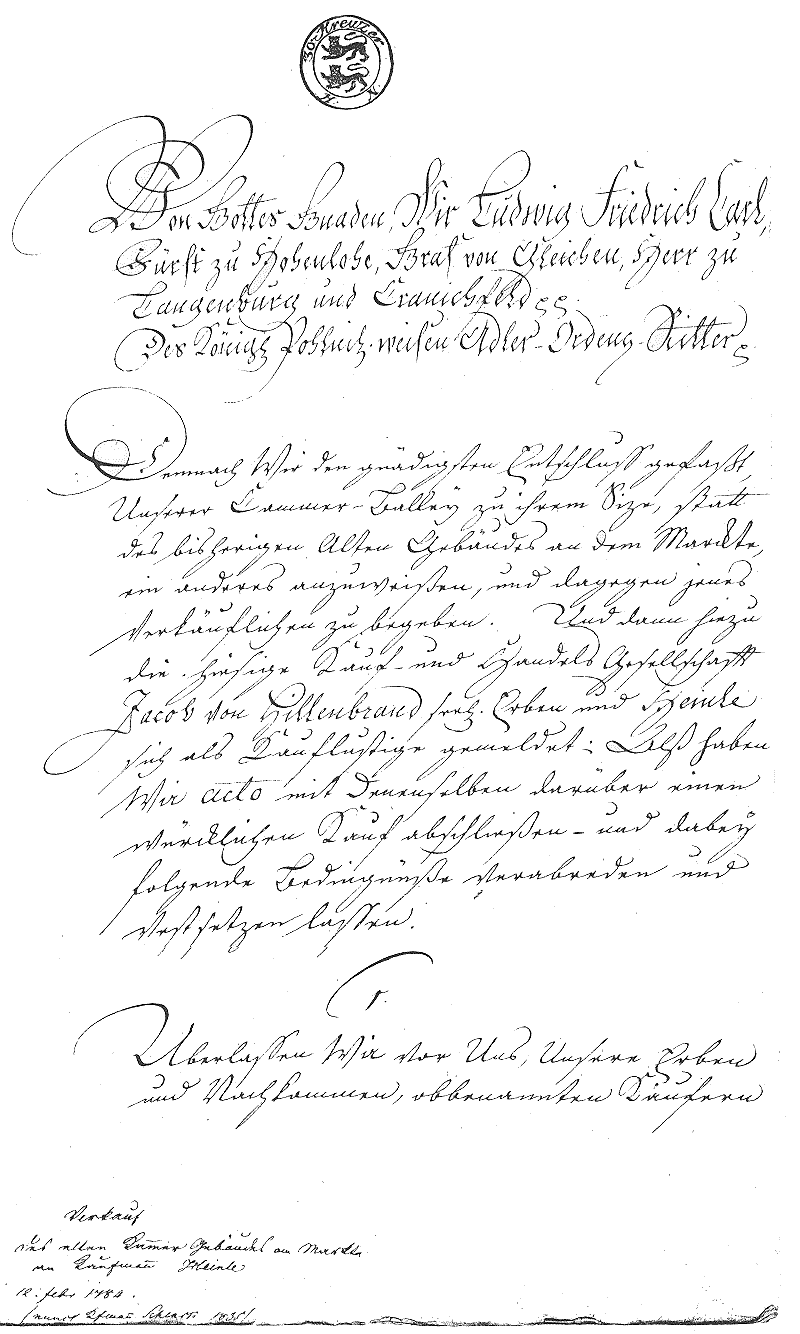 30 Kreuzer
H. N.
Von Gottes Gnaden, Wir Ludwig Friedrich Carl,
Fürst zu Hohenlohe, Graf von Gleichen, Herr zu
Langenburg und Cranichfeld
Des Königl. Pohlnisch. weisen Adler-Ordens Ritter
Demnach Wir den gnädigsten Entschluss gefaßt,
Unserer Cammer-Balley zu ihrem Size, statt
des bisherigen Alten Gebäudes an dem Marckte,
ein anderes anzuweißen, und dagegen jenes
verkäuflichen zu begeben. Und dann hiezu
die hiesige Kauf- und Handels Gesellschafft
Jacob von Hillenbrand seel. Erben und Heinle
sich als Kauflustige gemeldet: Alß haben
Wir acto mit denenselben darüber einen
würcklichen Kauf abschließen - und dabey
folgende Bedingnüße verabreden und
vestsetzen lassen.
1.
Uberlassen Wir vor Uns, Unsere Erben
und Nachkommen, obbenannten Käufern
Verkauf
des alten Kammer Gebäudes am Markte
an Kaufmann Heinle
12. febr 1782.
1835